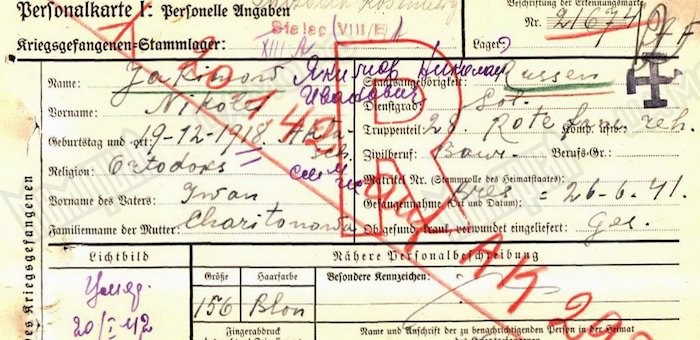 Personalkarte I: Personelle Angaben
Beschriftung der Erkennungsmarke
Nr. 21674
Kriegsgefangenen-Stammlager: Stalag (VIII/E)
XIII A
Lager:
Name: Jakimow Якимов Николай
Staatsangehörigkeit: Russen
Vorname: Nikolei Иванович
Dienstgrad: Sol.
Geburtstag und -ort: 19-12-1918
Truppenteil: 28. Rote Komp. usw.
Religion: Ortodoks
Zivilberuf: Baur. Berufs-Gr.:
Matrikel Nr. (Stammrolle des Heimatstaates)
Vorname des Vaters: Iwan
Gefangennahme (Ort und Datum): Bres = 26-6.41.
Familienname der Mutter: Charitonowa
Ob gesund, krank, verwundet eingeliefert: Ges.
R
20.1.42 Auf AK
des Kriegsgefangenen
Lichtbild
Nähere Personalbeschreibung
Größe Haarfarbe Besondere Kennzeichen:
156 Blon
Умер
20/I 42
Fingerabdruck
Name und Anschrift der zu benachrichtigenden Person in der Heimat